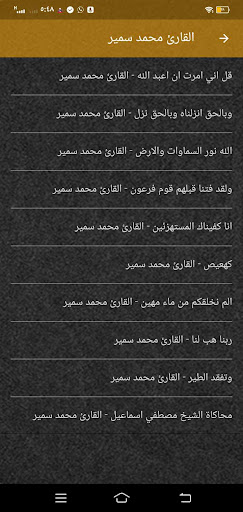 ٥:٤٨
القارئ محمد سمير
قل اني امرت ان اعبد الله - القارئ محمد سمير
وبالحق انزلناه وبالحق نزل - القارئ محمد سمير
الله نور السماوات والارض - القارئ محمد سمير
ولقد فتنا قبلهم قوم فرعون - القارئ محمد سمير
انا كفيناك المستهزئين - القارئ محمد سمير
كهعيص - القارئ محمد سمير
الم نخلقكم من ماء مهين - القارئ محمد سمير
ربنا هب لنا - القارئ محمد سمير
وتفقد الطير - القارئ محمد سمير
محاكاة الشيخ مصطفي اسماعيل - القارئ محمد سمير